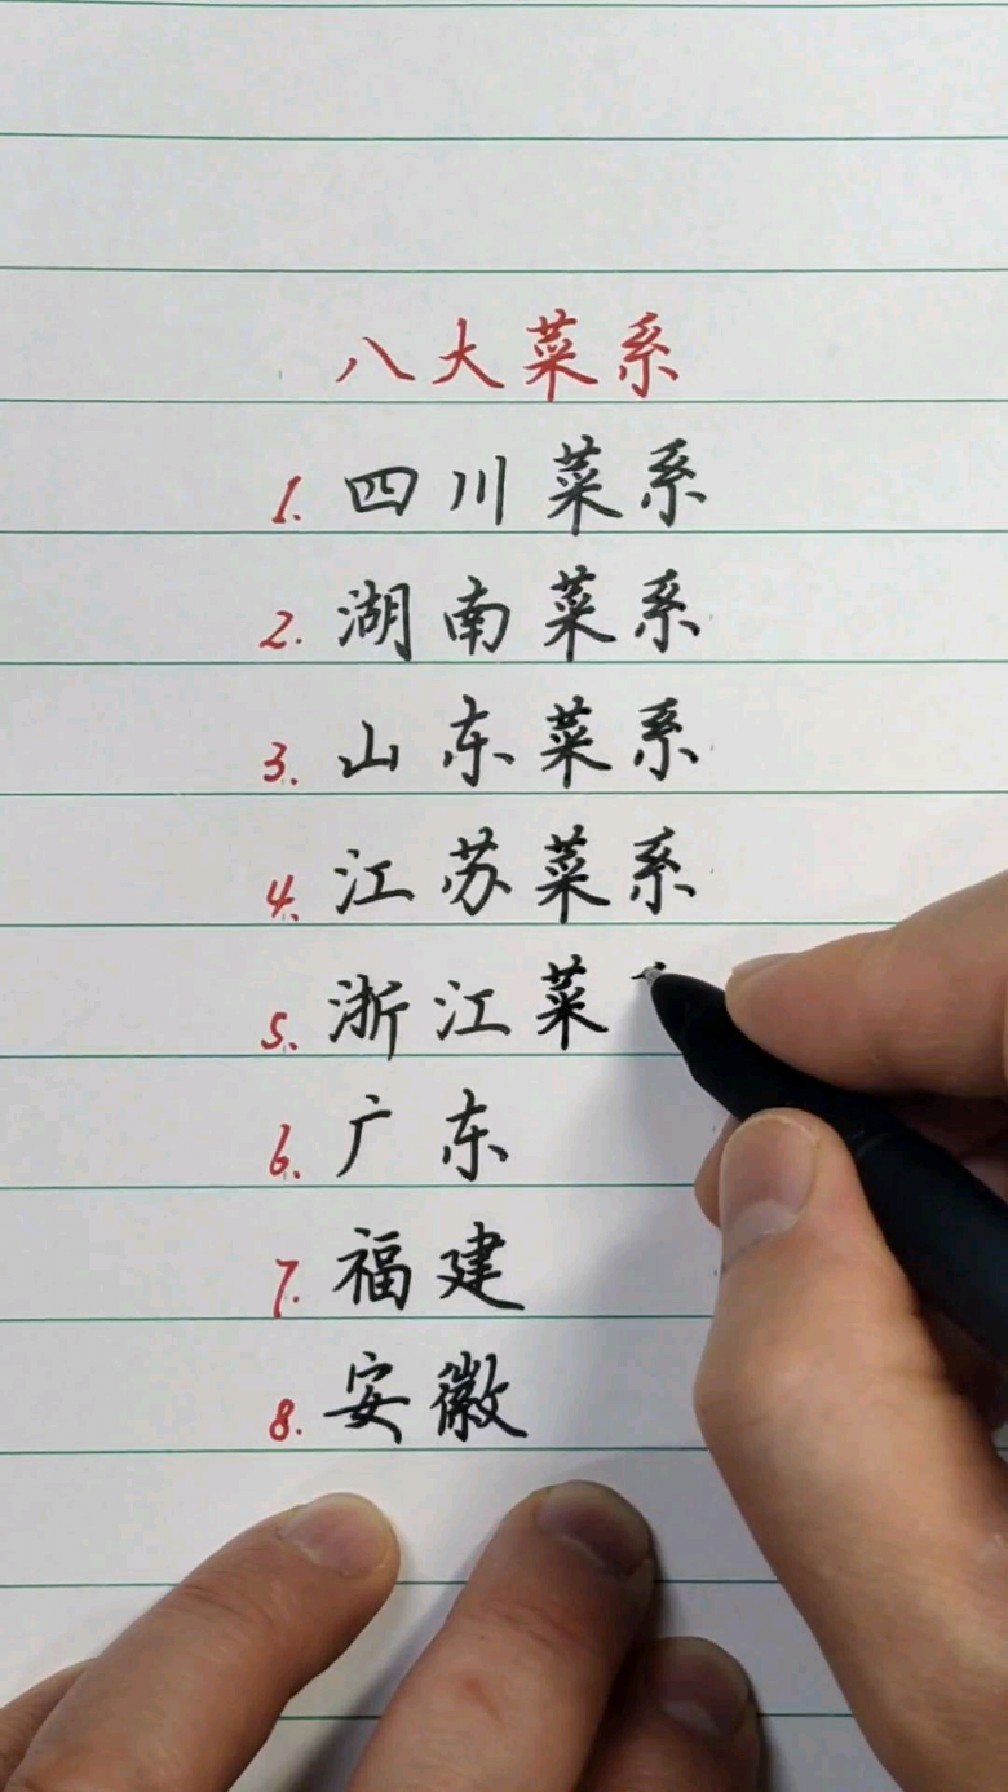 八大菜系
1. 四川菜系
2. 湖南菜系
3. 山东菜系
4. 江苏菜系
5. 浙江菜
6. 广东
7. 福建
8. 安徽